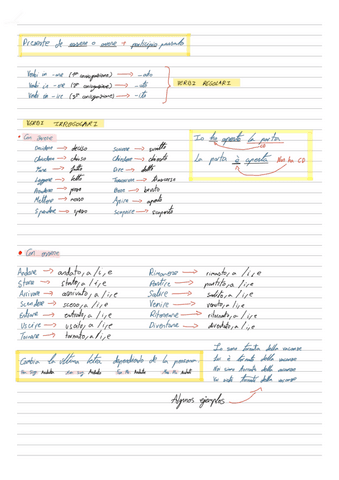 Presente de essere o avere + participio passato
Verbi in -are (1ª coniugazione) → -ato
Verbi in -ere (2ª coniugazione) → -uto
Verbi in -ire (3ª coniugazione) → -ito
VERBI REGOLARI
VERBI IRREGOLARI
• Con avere
Decidere → deciso
Chiudere → chiuso
Fare → fatto
Leggere → letto
Prendere → preso
Mettere → messo
Spendere → speso
→ scelto
Chiedere → chiesto
Dire → detto
→ trascorso
Bere → bevuto
Aprire → aperto
Scoprire → scoperto
Io ho aperto la porta
CD
La porta è aperta No ho CD
• Con essere
Andare → andato, a / i, e
Stare → stato, a / i, e
Arrivare → arrivato, a / i, e
Scendere → sceso, a / i, e
Entrare → entrato, a / i, e
Uscire → usato, a / i, e
Tornare → tornato, a / i, e
Rimanere → rimasto, a / i, e
Partire → partito, a / i, e
Salire → salito, a / i, e
Venire → venuto, a / i, e
Ritornare → ritornato, a / i, e
Diventare → diventato, a / i, e
Cambia la ultima letra dependiendo de la persona
Andato
Andata
Andati
Io sono tornata dalle vacanze
Lui è tornato dalle vacanze
Noi siamo tornati dalle vacanze
tornate dalle vacanze
Algunos ejemplos